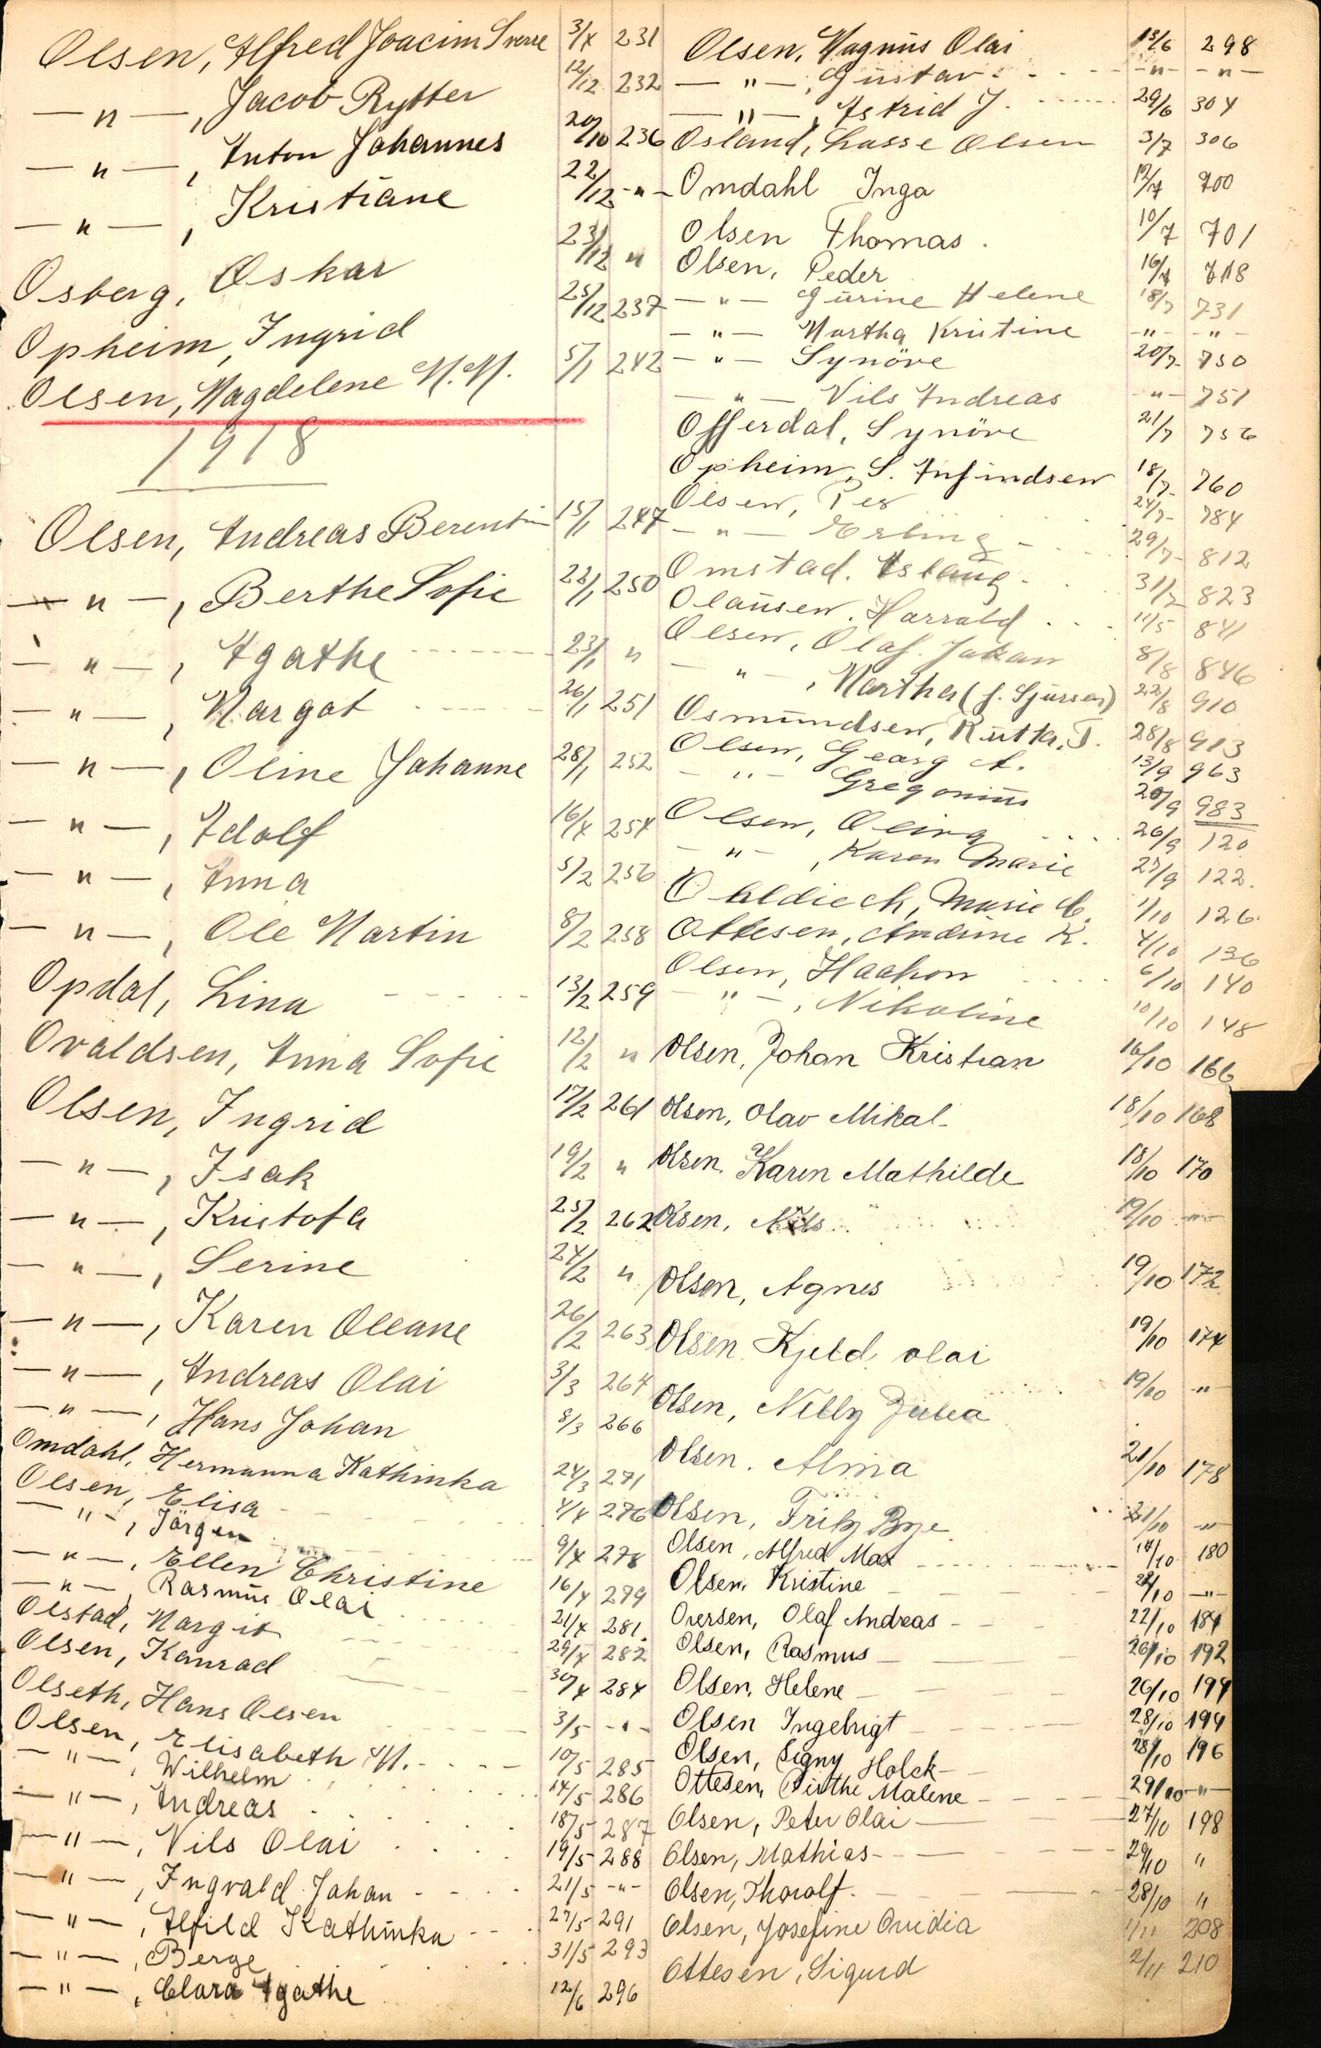 Olsen, Alfred Joacim Sverre 3/X 231
— " —, Jacob Rytter 12/12 232
— " —, Anton Johannes 20/10 236
— " —, Kristiane 22/12 - " -
Osberg, Oskar 23/12 "
Opheim, Ingrid 25/12 237
Olsen, Magdelene M. M. 5/1 242
1918
Olsen, Andreas Berentin 15/1 247
— " —, Berthe Sofie 22/1 250
— " —, Agathe 23/1 "
— " —, Margot 26/1 251
— " —, Oline Johanne 28/1 252
— " —, Adolf 16/X 254
— " —, Anna 5/2 256
— " —, Ole Martin 8/2 258
Opdal, Lina 13/2 259
Ovaldsen, Anna Sofie 12/2 "
Olsen, Ingrid 17/2 261
— " —, Isak 19/2 "
— " —, Kristofa 25/2 262
— " —, Serine 24/2 "
— " —, Karen Oleane 26/2 263
— " —, Andreas Olai 3/3 264
— " —, Hans Johan 8/3 266
Omdahl, Hermanna Kathinka 24/3 271
Olsen, Elisa 4/4 276
— " —, Jörgen
— " —, Ellen Christine 9/4 278
— " —, Rasmus Olai 16/4 279
Olstad, Margit 21/4 281
Olsen, Konrad 29/4 282
Olseth, Hans Olsen 30/4 284
Olsen, Elisabeth M. 3/5 - " -
— " —, Wilhelm 10/5 285
— " —, Andreas 14/5 286
— " —, Nils Olai 18/5 287
— " —, Ingvald Johan 19/5 288
— " —, Alfild Kathinka 21/5 - " -
— " —, Berge 27/5 291
— " —, Clara Agathe 31/5 293
12/6 296
Olsen, Magnus Olai 13/6 298
— " —, Gustav - " - - " -
— " —, Astrid J. 29/6 304
Osland, Lasse Olsen 3/7 306
Omdahl Inga 12/7 700
Olsen Thomas. 10/7 701
Olsen, Peder 16/7 718
— " — Gurine Helene 18/7 731
— " — Martha Kristine - " - - " -
— " — Synöve 20/7 750
— " — Nils Andreas - " - 751
Offerdal, Synöve 21/7 756
Opheim, S. Anfindsen 18/7 760
Olsen, Per 24/7 784
— " — Erling 29/7 812
Omstad. Aslaug 31/7 823
Olausen, Harrald 11/5 841
Olsen, Olaf Johan 8/8 846
— " —, Martha (f. Sjursen) 22/8 910
Osmundsen, Ruth, T. 28/8 913
Olsen, Georg A. 13/9 963
— " — Gregonius 20/9 983
Olsen, Olina 26/9 120
— " —, Karen Marie 27/9 122.
Oldieck, Marie C. 1/10 126
Ottesen, Andrine K. 4/10 136
Olsen, Haakon 6/10 140
— " —, Nikoline 10/10 148
Olsen, Johan Kristian 16/10 166
Olsen, Olav Mikal 18/10 168
Olsen, Karen Mathilde 18/10 170
Olsen, Nils 19/10 - " -
Olsen, Agnes 19/10 172
Olsen Kjeld olai 19/10 174
Olsen, Nelly Julea 19/10 - " -
Olsen. Alma 21/10 178
Olsen, Fritz Bye 21/10 - " -
Olsen, Alfred Max 14/10 180
Olsen, Kristine 22/10 - " -
Oversen, Olaf Andreas 22/10 184
Olsen, Rasmus 26/10 192
Olsen, Helene 26/10 194
Olsen Ingebrigt 28/10 194
Olsen, Signy Holck 28/10 196
Ottesen, Birthe Malene 29/10 - " -
Olsen, Peter Olai 27/10 198
Olsen, Mathias 29/10 "
Olsen, Thorolf 28/10 "
Olsen, Josefine Ovidia 1/11 208
Ottesen, Sigurd 2/11 210